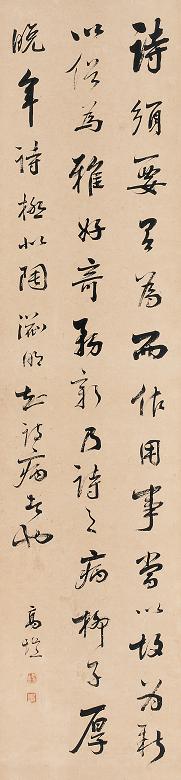 詩須要有為而作用事當以故為新
以俗為雅好奇務新乃詩之病柳子厚
晚年詩極似陶淵明知詩病者也
高塏